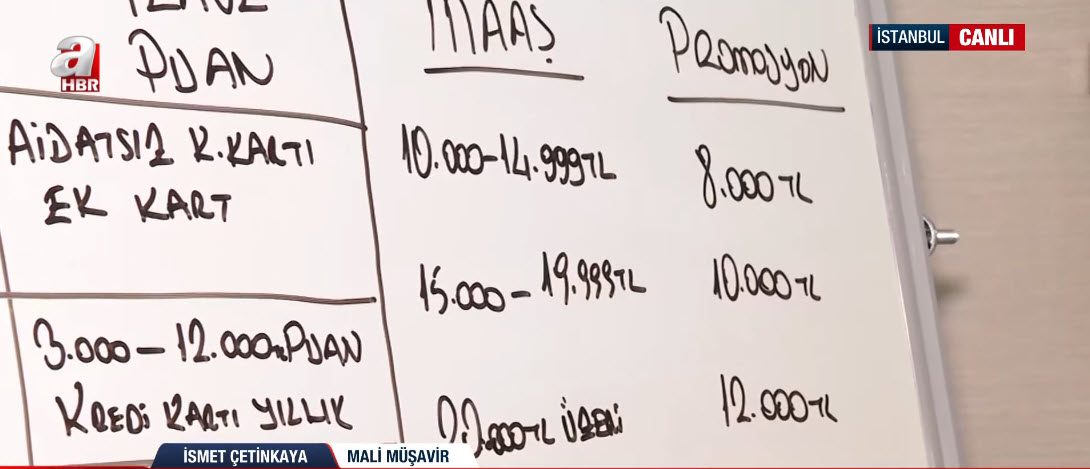 PUAN
MAAŞ
PROMOSYON
a
HBR
İSTANBUL CANLI
AİDATSIZ K.KARTI
EK KART
10.000-14.999TL
8.000TL
15.000-19.999TL
10.000TL
3.000-12.000TL PUAN
KREDİ KARTI YILLIK
ÜZERİ
12.000TL
İSMET ÇETİNKAYA MALİ MÜŞAVİR